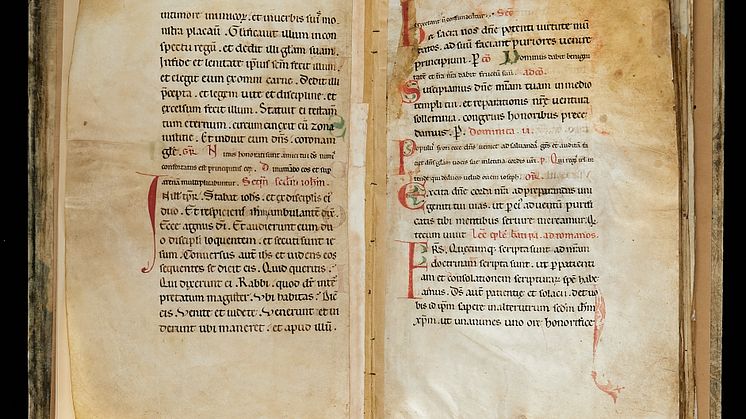 timore inimicoꝝ. et inuerbis suis mo
nstra placauit. Glificauit illum incon
spectu regū. et dedit illi glam suam.
Infide et lenitate ipsius scm fecit illum.
et elegit eum exomni carne. Dedit illi
p̄cepta. et legem uite et discipline. et
excelsum fecit illum. Statuit ei testam
tum eternum. circumcinxit eū zona
iustitie. Et induit eum dn̄s. coronam
gle. GR. Nimis honorati sunt amici tui ds̄ nimis
confortatus est principatus eoꝝ. Dinumabo eos et sup
arenā multiplicabuntur. scdm iohm.
In ill tpr̄. Stabat iohs. et ex discipl̄is ei
duo. Et respiciens ihm̄ ambulantē dix̄.
Ecce agnus di. Et audierunt eum du
o discipl̄i loquentem. et secuti sunt ie
sum. Conuersus aut̄ ihs̄ et uidens eos
sequentes se dicit eis. Quid queritis.
Qui dixerunt ei. Rabbi. quod dr̄ int̄
pretatum magister. Vbi habitas. Dic̄
eis. Venite et uidete. Venerunt et ui
derunt ubi maneret. et apud illū.
expectant n̄ confundentur.
Hec sacra nos dn̄e potenti uirtute mū
datos. ad suū faciant puriores uenire
principium. P. cō Dominus dabit benigni
tatē et tr̄a nrā dabit fructū suū. adcō.
Suscipiamus dn̄e mīam tuam in medio
templi tui. et reparationis nr̄e uentura
sollemnia. congruis honoribus prece
damus. P. dominica. ii.
Populus syon ecce dn̄s ueniet ad saluandas gēs et auditā fa
ciet dn̄s glam uocis sue in letitia cordis ur̄i. p. Qui regis isrl̄ in
tende qui deducis uelud ouem ioseph. OR.
Excita dn̄e corda nr̄a ad preparandas uni
geniti tui uias. ut per ei aduentū purifi
catis tibi mentibus seruire mereamur. Q
tecum uiuit. Lec̄ eple beati pa. ad romanos.
FRS. Quecumq; scripta sunt ad nr̄am
doctrinam scripta sunt. ut p̄ patienti
am et consolationem scripturaꝝ spem habe
amus. Ds̄ autem patientie et solacii. det uo
bis id ipm̄ sapere in alterutrum scdm ihm̄
xp̄m. ut unanimes uno ore honorifice